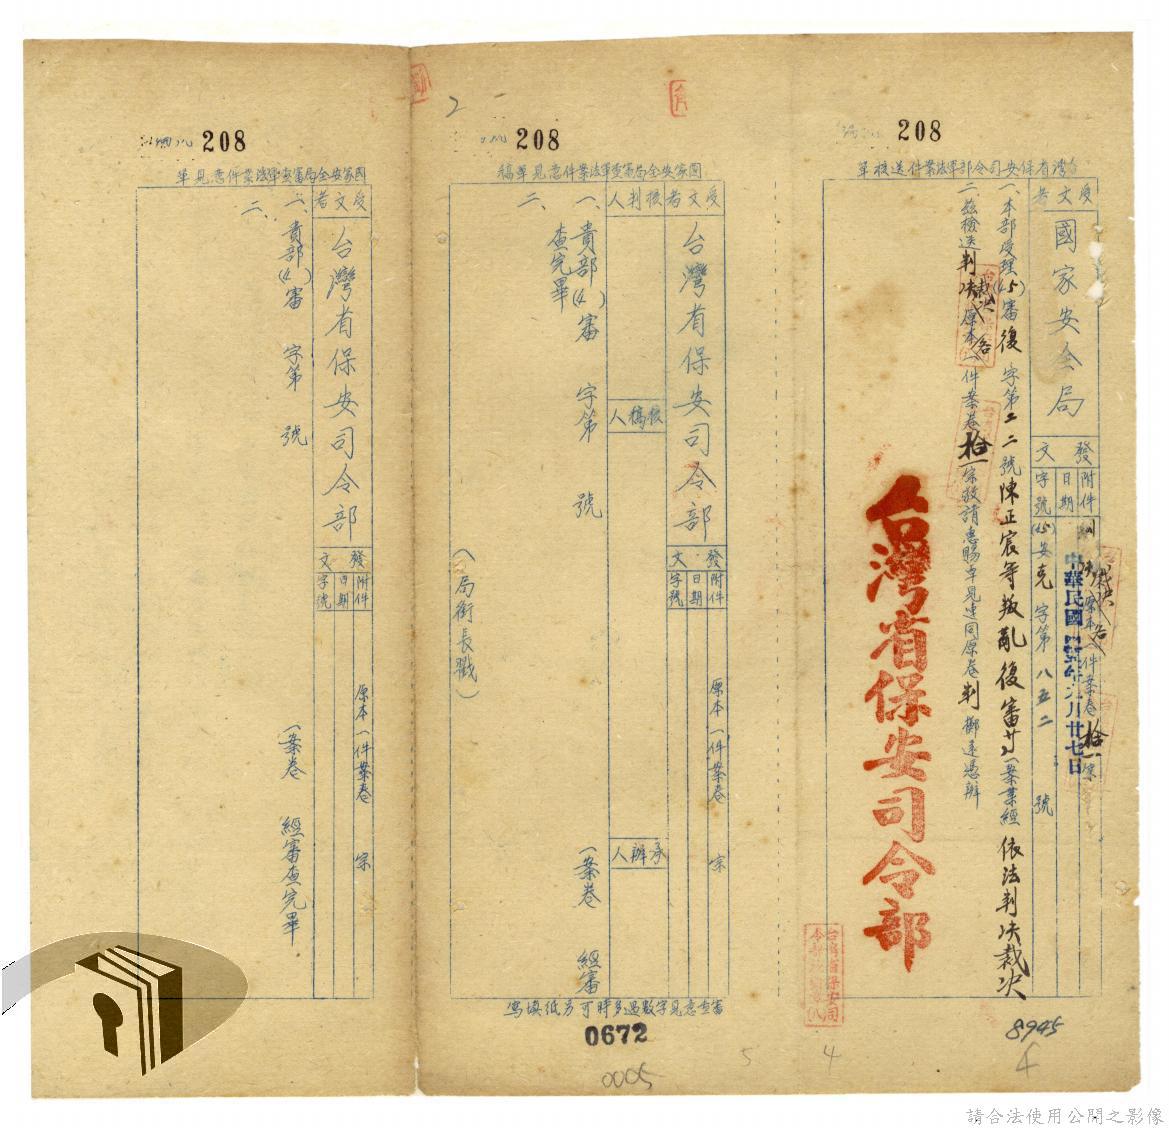 208
台灣省保安司令部軍法案件送核單
受文者
國家安全局
發文
附件
日期
字號
原本一件案卷拾一宗
中華民國
月廿七日
(45)安克字第八五二號
一、本部受理(45)審復字第二二號陳正宸等叛亂復審廿一案業經依法判決裁決
二、茲檢送判決裁決原本各一件案卷拾一宗敬請惠賜卓見連同原卷判擲還憑辦
台灣省保安司令部
8945
4
208
國家安全局審查軍法案件意見單稿
受文者
台灣省保安司令部
發文
附件
日期
字號
原本一件案卷 宗
核判人
核稿人
承辦人
一、貴部(4 )審 字第 號 一案卷 經審
查完畢
二、
(局銜長戳)
審查意見字數過多時可另紙填寫
0672
0005
5
2
208
國家安全局審查軍法案件意見單
受文者
台灣省保安司令部
發文
附件
日期
字號
原本一件案卷 宗
一、貴部(4 )審 字第 號 一案卷 經審查完畢
二、
請合法使用公開之影像